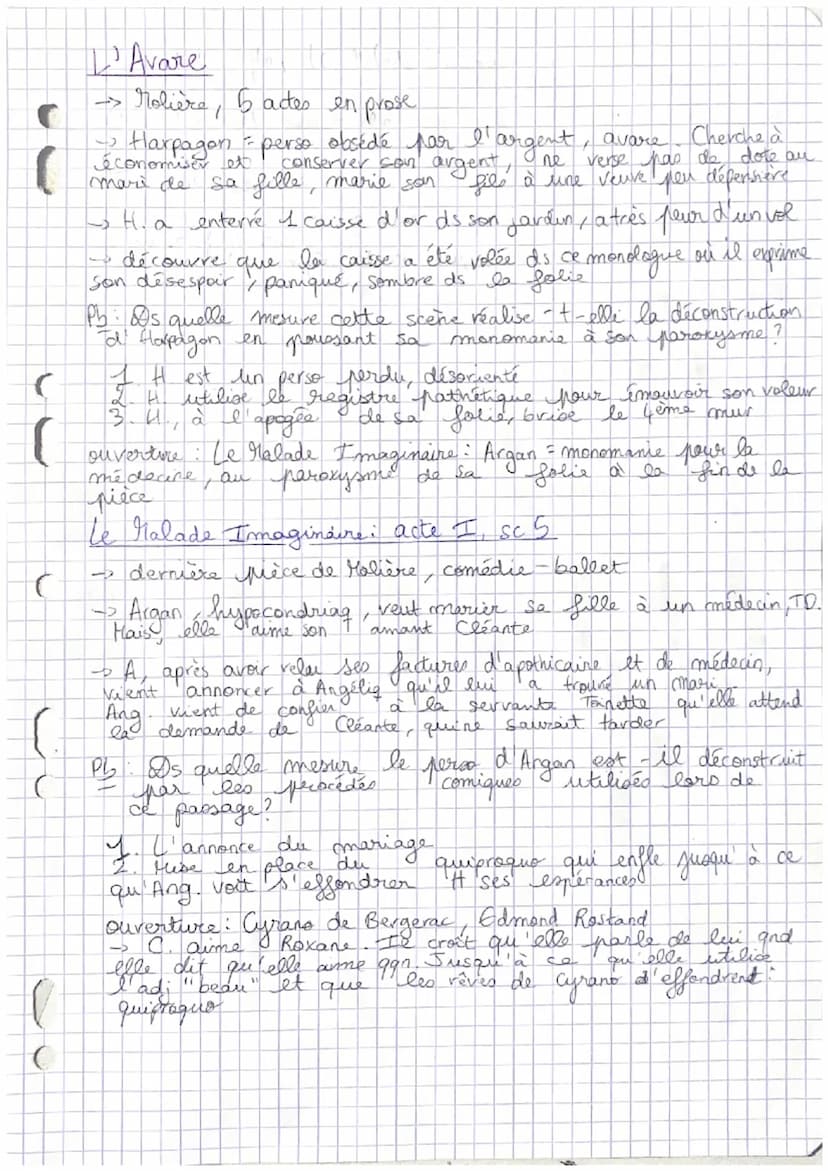 L'Avare
-> Molière, 5 actes en prose
-> Harpagon = perso obsédé par l'argent, avare. Cherche à
économiser et conserver son argent, ne verse pas de dote au
mari de sa fille, marie son fils à une veuve peu dépensière
-> H. a enterré 1 caisse d'or ds son jardin, a très peur d'un vol
-> découvre que la caisse a été volée ds ce monologue où il exprime
son désespoir, paniqué, sombre ds la folie
Pb : Ds quelle mesure cette scène réalise-t-elle la déconstruction
d'Harpagon en poussant sa monomanie à son paroxysme ?
1. H est un perso perdu, désorienté
2. H. utilise le registre pathétique pour émouvoir son voleur
3. H., à l'apogée de sa folie, brise le 4ème mur
ouverture : Le Malade Imaginaire : Argan = monomanie pour la
médecine, au paroxysme de sa folie à la fin de la
pièce
Le Malade Imaginaire : acte I, sc 5
-> dernière pièce de Molière, comédie-ballet
-> Argan, hypocondriaq, veut marier sa fille à un médecin, TD.
Mais, elle aime son amant Cléante
-> A, après avoir relu ses factures d'apothicaire et de médecin,
vient annoncer à Angéliq qu'il lui a trouvé un mari
Ang. vient de confier à la servante Toinette qu'elle attend
la demande de Cléante, qui ne saurait tarder
Pb : Ds quelle mesure le perso d'Argan est-il déconstruit
par les procédés comiques utilisés lors de
ce passage ?
1. L'annonce du mariage
2. Mise en place du quiproquo qui enfle jusqu'à ce
qu'Ang. voit s'effondrer tt ses espérances
ouverture : Cyrano de Bergerac, Edmond Rostand
-> C. aime Roxane. Il croit qu'elle parle de lui qnd
elle dit qu'elle aime qqn. Jusqu'à ce qu'elle utilise
l'adj "beau" et que les rêves de Cyrano s'effondrent :
quiproquo